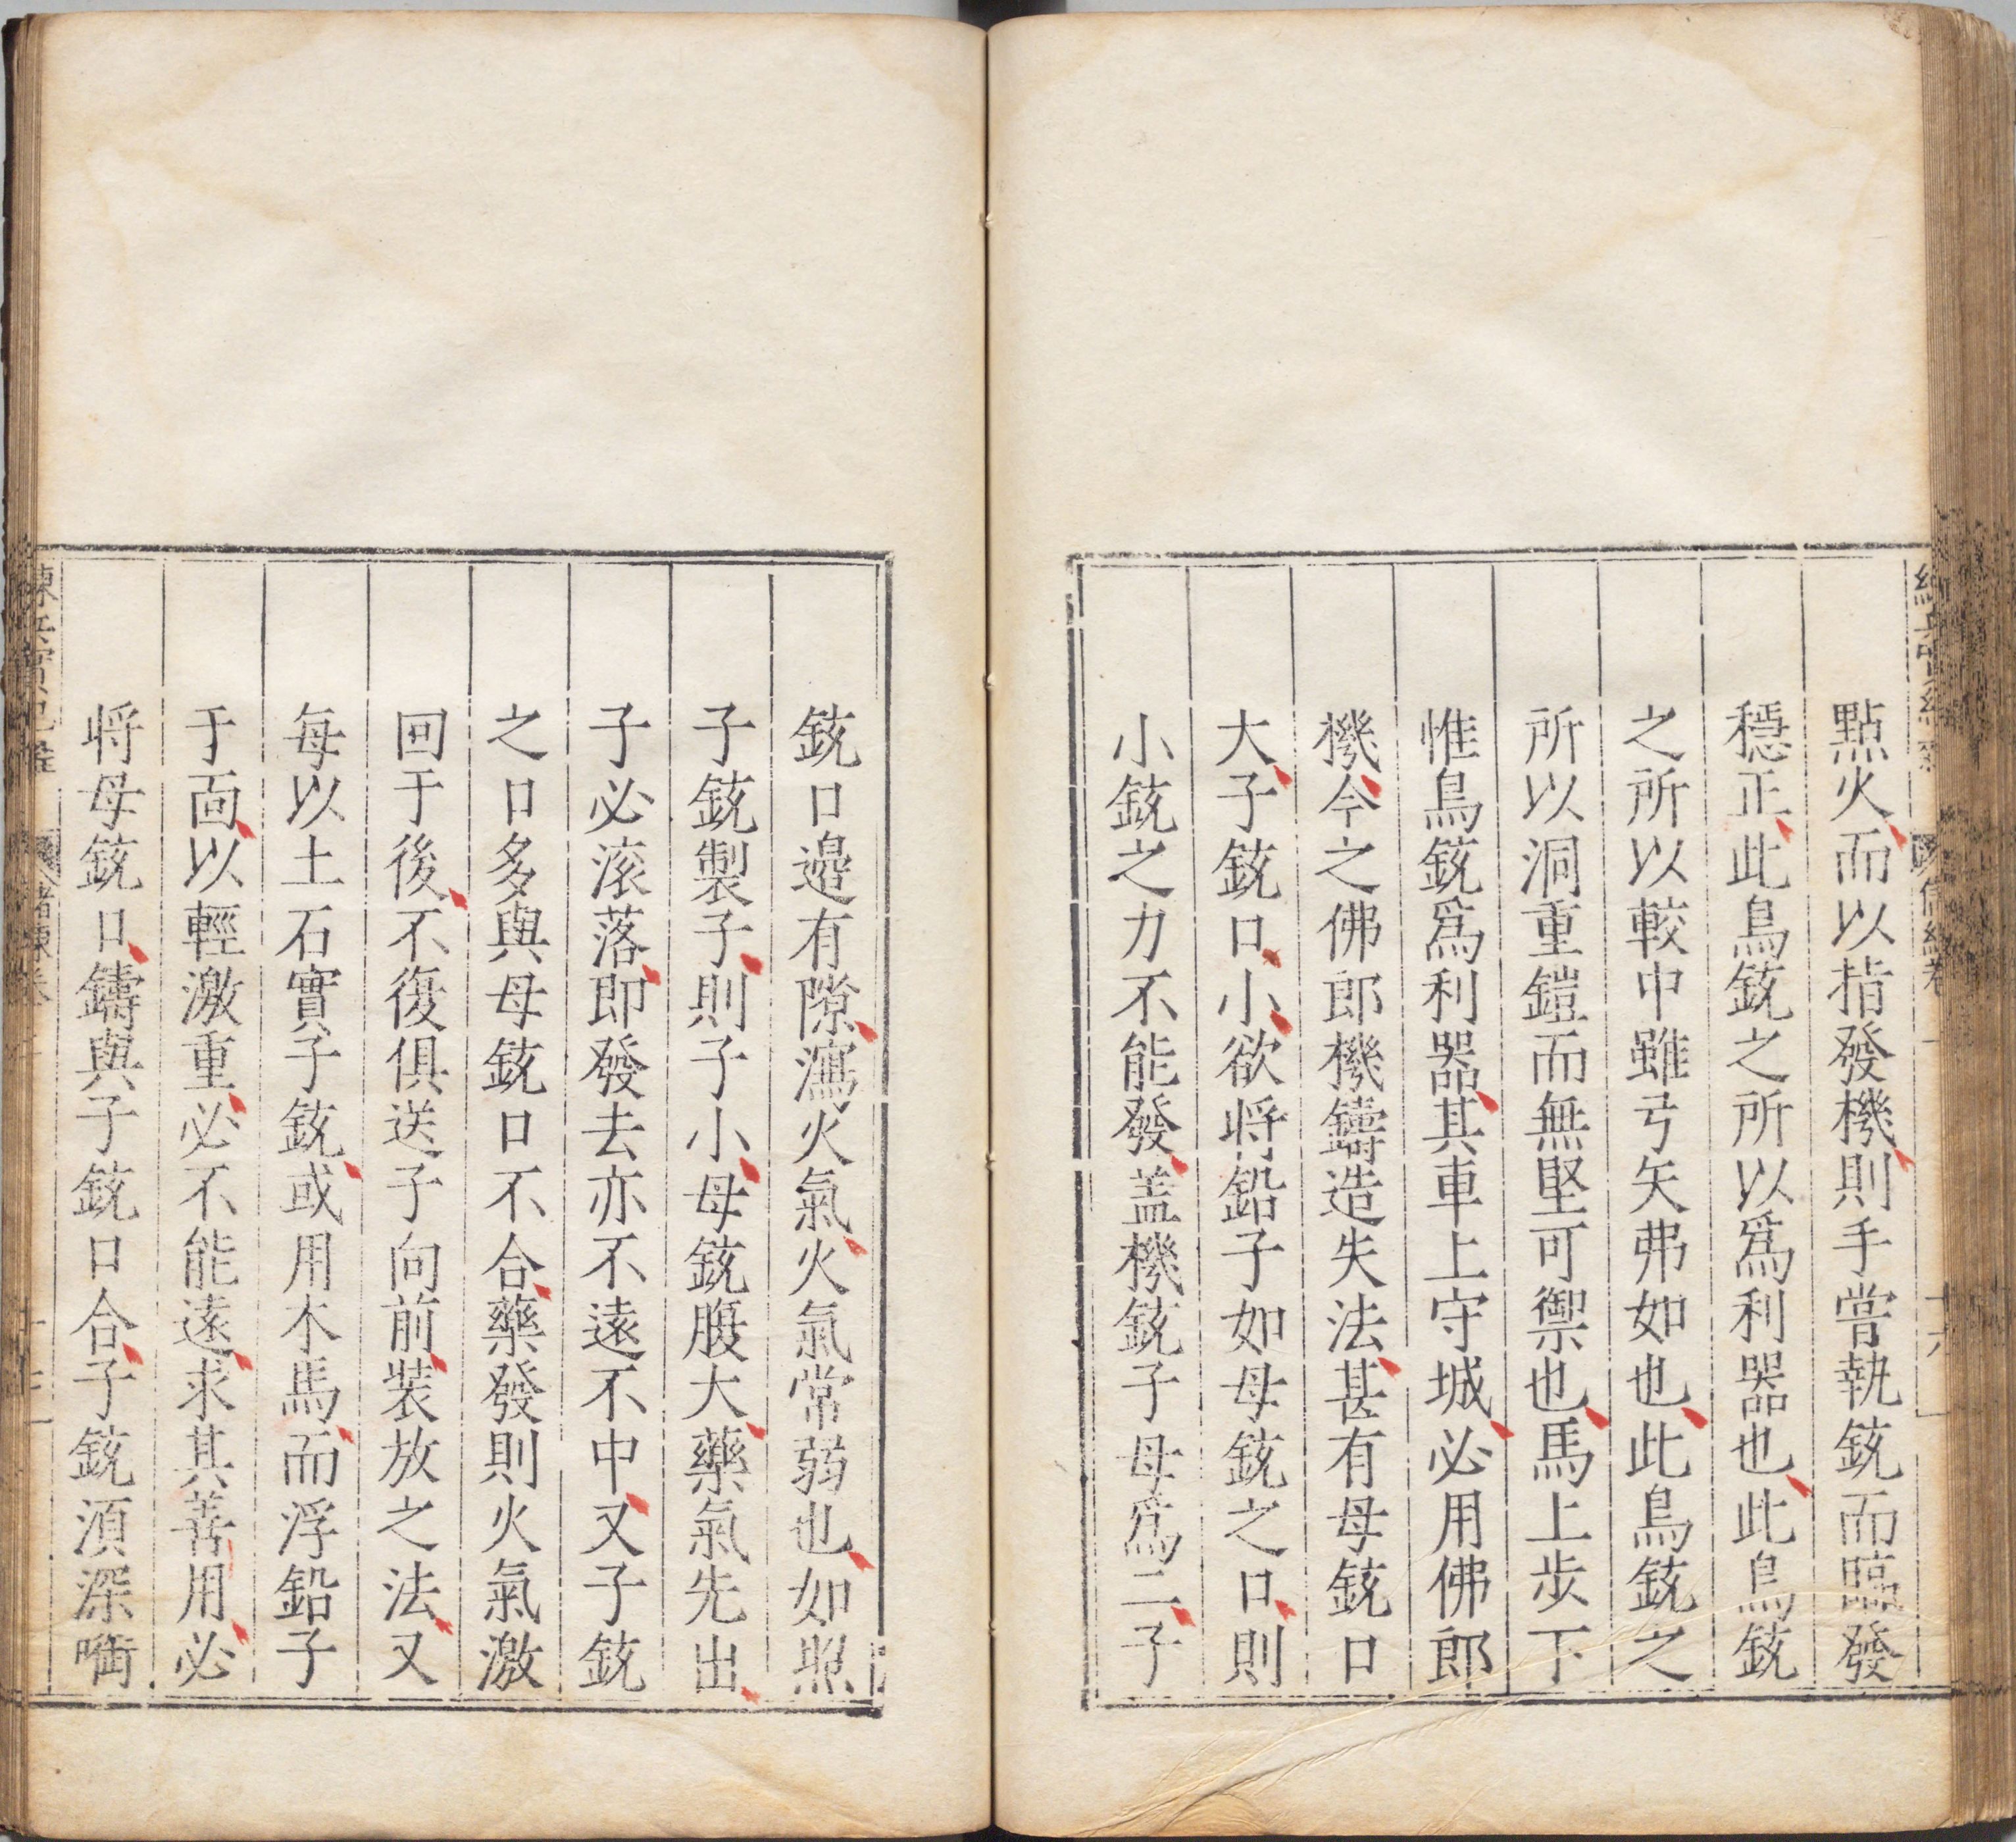 點火而以指發機則手嘗執銃而臨發
穩正此鳥銃之所以爲利器也此鳥銃
之所以較中雖弓矢弗如也此鳥銃之
所以洞重鎧而無堅可禦也馬上步下
惟鳥銃爲利器其車上守城必用佛郎
機今之佛郎機鑄造失法甚有母銃口
大子銃口小欲將鉛子如母銃之口則
小銃之力不能發盖機銃子母爲二子
銃口邊有隙瀉火氣火氣常弱也如照
子銃製子則子小母銃腹大藥氣先出
子必滚落即發去亦不遠不中又子銃
之口多與母銃口不合藥發則火氣激
回于後不復俱送子向前裝放之法又
每以土石實子銃或用木馬而浮鉛子
于面以輕激重必不能遠求其善用必
將母銃口鑄與子銃口合子銃湏深嘀